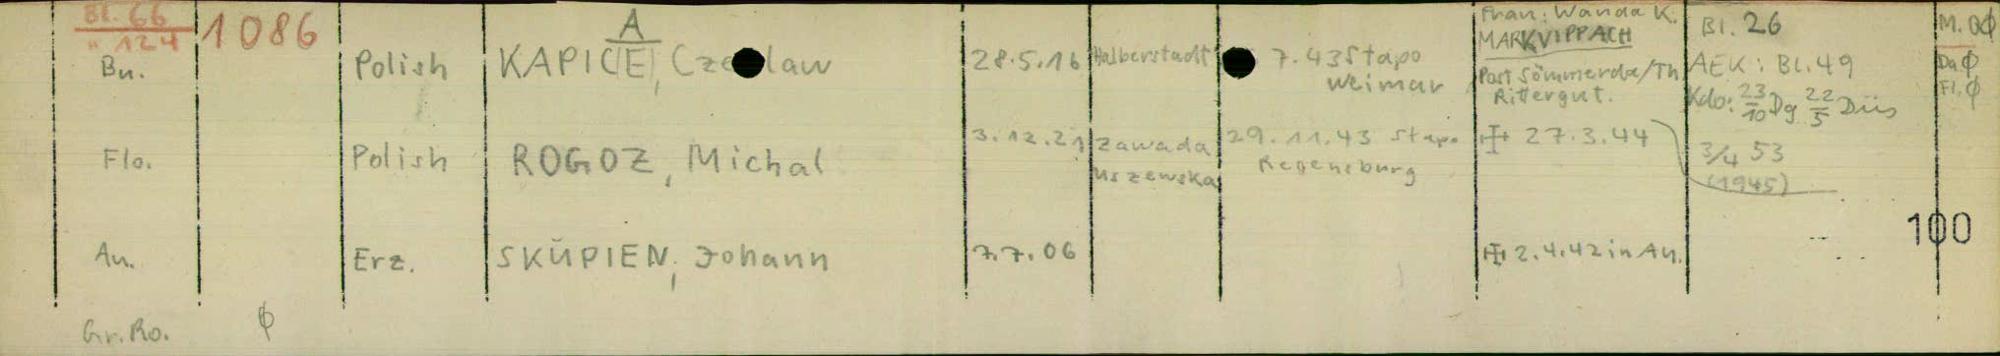 Bl. 66
" 124
1086
Bu.
Polish
A
KAPICE, Cze law
28.5.16
Halberstadt
7.43 Stapo
Weimar
Frau: Wanda K.
MARKVIPPACH
Post Sömmerda/Th
Rittergut.
Bl. 26
AEK: Bl. 49
Kdo: 23/10 Dg 22/5 Düs
M. Qφ
Da φ
Fl. φ
Flo.
Polish
ROGOZ, Michal
3.12.21
Zawada
uszewska
29.11.43 Stapo
Regensburg
27.3.44
3/4 53
(1945)
100
Au.
Erz.
SKŬPIEN, Johann
7.7.06
2.4.42 in Au.
Gr. Ro.
φ